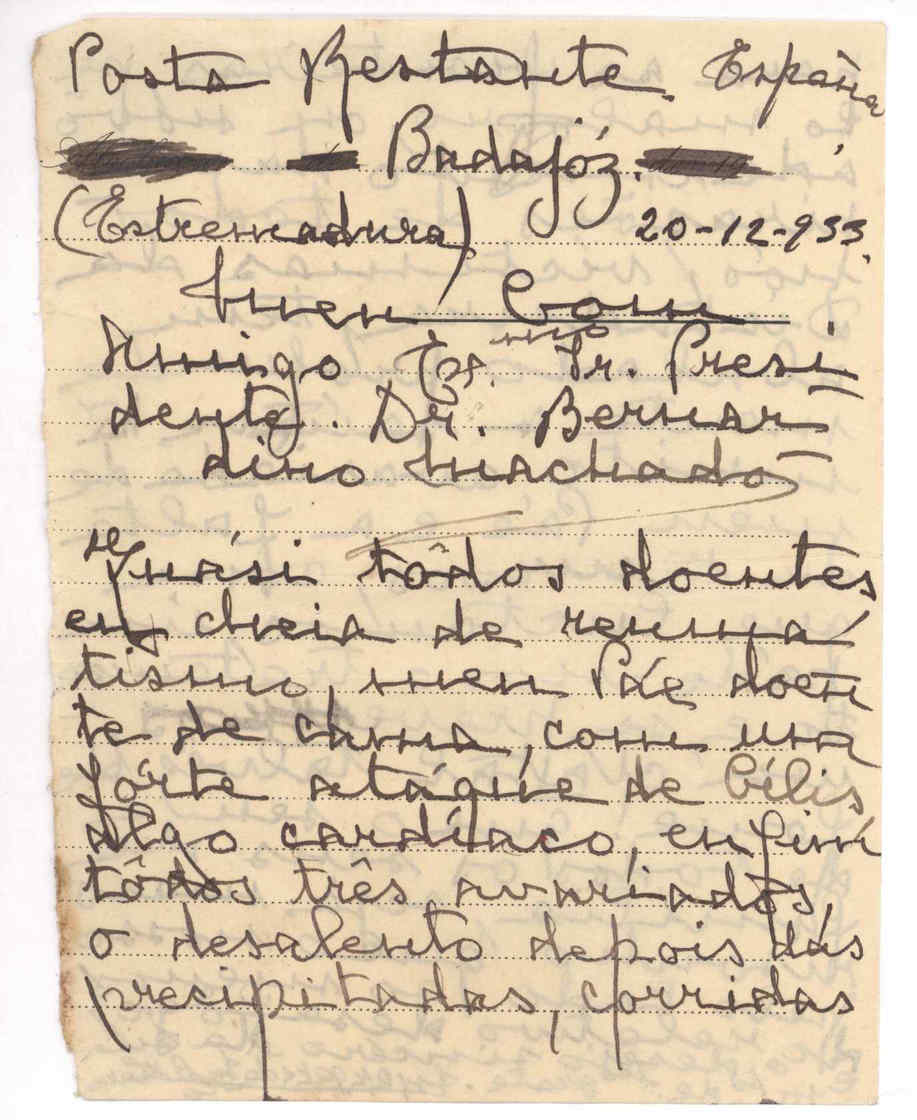 Posta Restante. España
Badajóz.
(Estremadura) 20-12-933.
Meu Bom
Amigo Ex.mo Sr. Presi
dente. Dr. Bernar
dino Machado
Quási tôdos doentes
eu cheia de reumá
tismo, meu Páe doen
te de cama, com um
fórte atáque de bílis
algo cardíaco, enfim
tôdos três avariádos,
o desalento depois dás
precipitadas, corridas